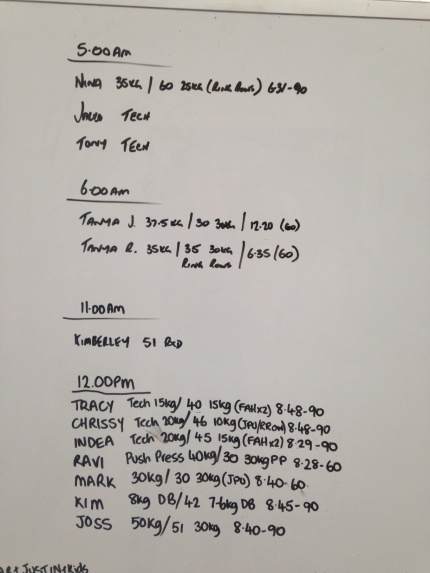 5.00Am
Nina 35kg / 60 25kg (Ring Rows) 6.31-90
TECH
Tony TECH
6.00Am
TANYA J. 37.5kg / 30 30kg / 12.20 (60)
TANYA R. 35kg / 35 30kg / 6.35 (60)
Ring Rows
11.00Am
KIMBERLEY 51 RXD
12.00Pm
TRACY Tech 15kg/ 40 15kg (FAHx2) 8.48-90
CHRISSY Tech 20kg/ 46 10kg (JPU/RROW) 8.48-90
INDEA Tech 20kg/ 45 15kg (FAHx2) 8.29-90
RAVI Push Press 40kg/30 30kg PP 8.28-60
MARK 30kg/ 30 30kg (JPU) 8.40-60
KIM 8kg DB/42 7-6kg DB 8.45-90
JOSS 50KG/51 30kg 8.40-90
JUSTIN+KIDS